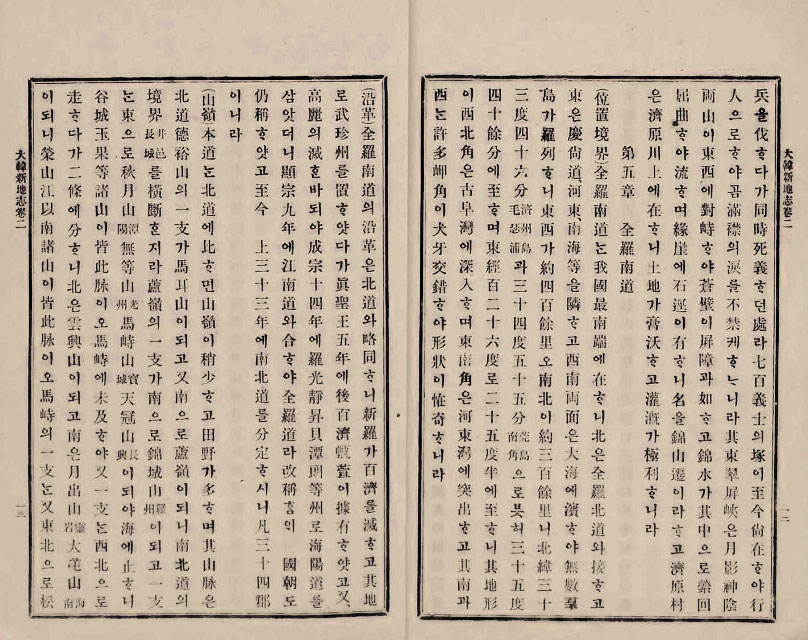 大韓新地志卷二
一二
兵을伐ᄒᆞ다가同時死義ᄒᆞ던處라七百義士의塚이至今尙在ᄒᆞ야行
人으로ᄒᆞ야곰滿襟의淚를不禁케ᄒᆞᄂᆞ니라其東翠屛峽은月影神陰
両山이東西에對峙ᄒᆞ야蒼壁이屛障과如ᄒᆞ고錦水가其中으로縈回
屈曲ᄒᆞ야流ᄒᆞ며緣崖에石逕이有ᄒᆞ니名을錦山遷이라ᄒᆞ고濟原村
은濟原川上에在ᄒᆞ니土地가膏沃ᄒᆞ고灌漑가極利ᄒᆞ니라
第五章 全羅南道
(位置境界)全羅南道ᄂᆞᆫ我國最南端에在ᄒᆞ니北은全羅北道와接ᄒᆞ고
東은慶尙道河東、南海等을隣ᄒᆞ고西南両面은大海에濱ᄒᆞ야無數羣
島가羅列ᄒᆞ니東西가約四百餘里오南北이約三百餘里니北緯三十
三度四十六分濟州島毛瑟浦과三十四度五十五分莞島南角으로븟허三十五度
四十餘分에至ᄒᆞ며東經百二十六度로二十五度半에至ᄒᆞ니其地形
이西北角은古阜灣에深入ᄒᆞ며東南角은河東灣에突出ᄒᆞ고其南과
西ᄂᆞᆫ許多岬角이犬牙交錯ᄒᆞ야形狀이恠奇ᄒᆞ니라
(沿革)全羅南道의沿革은北道와略同ᄒᆞ니新羅가百濟를減ᄒᆞ고其地
로武珍州를置ᄒᆞ얏다가眞聖王五年에後百濟甄萱이據有ᄒᆞ얏고又、
高麗의減ᄒᆞᆫ바되야成宗十四年에羅光靜昇貝潭朗等州로海陽道를
삼앗더니顯宗九年에江南道와合ᄒᆞ야全羅道라改稱ᄒᆞᆷ이 國朝도
仍稱ᄒᆞ얏고至今 上三十三年에南北道를分定ᄒᆞ시니凡三十四郡
이니라
(山嶺)本道ᄂᆞᆫ北道에比ᄒᆞ면山嶺이稍少ᄒᆞ고田野가多ᄒᆞ며其山脉은
北道德裕山의一支가馬耳山이되고又南으로蘆嶺이되니南北道의
境界井邑長城를橫斷ᄒᆞᆫ지라蘆嶺의一支가南으로錦城山羅州이되고一支
ᄂᆞᆫ東으로秋月山潭陽無等山光州馬峙山寶城天冠山長興이되야海에止ᄒᆞ니
谷城玉果等諸山이皆此脉이오馬峙에未及ᄒᆞ야又一支ᄂᆞᆫ西北으로
走ᄒᆞ다가二條에分ᄒᆞ니北은雲興山이되고南은月出山靈岩大芚山海南
이되니榮山江以南諸山이皆此脉이오馬峙의一支ᄂᆞᆫ又東北으로松
大韓新地志卷二
一三